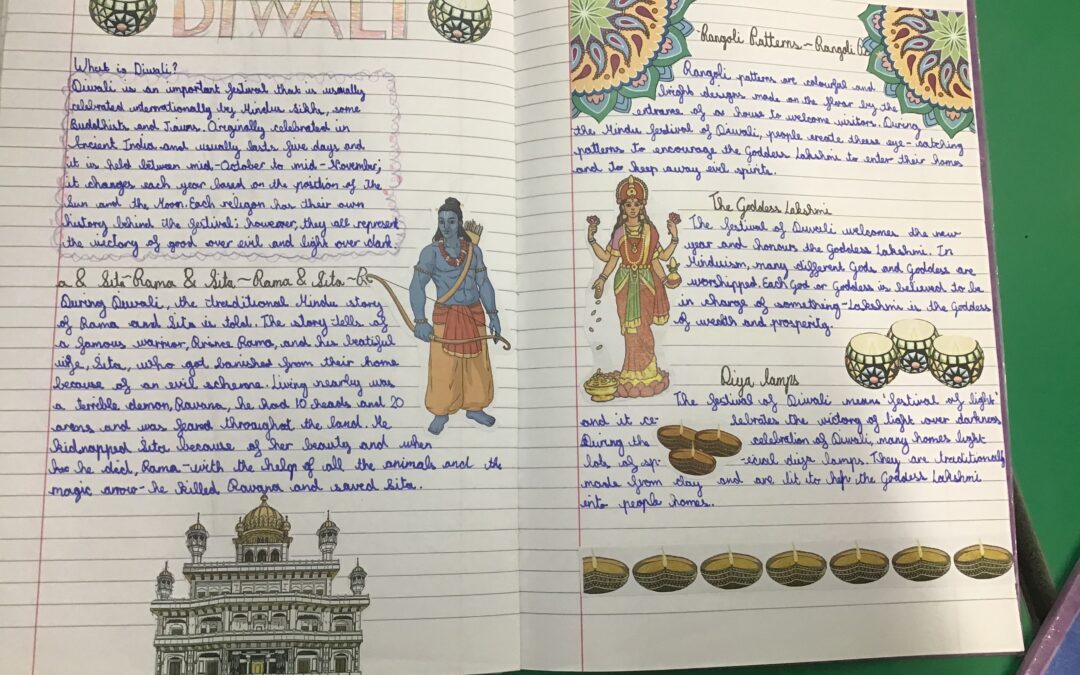 DIWALI
What is Diwali?
Diwali is an important festival that is usually
celebrated internationally by Hindus Sikhs, some
Buddhists and Jains. Originally celebrated in
Ancient India and usually lasts five days and
it is held between mid-October to mid-November;
it changes each year based on the position of the
Sun and the Moon. Each religon has their own
history behind the festival; however, they all represent
the victory of good over evil and light over dark.
a & Sita~Rama & Sita,~Rama & Sita~R
During Diwali, the traditional Hindu story
of Rama and Sita is told. The story tells of
a famous warrior, Prince Rama, and his beatiful
wife, Sita, who got banished from their home
because of an evil scheme. Living nearby was
a terrible demon, Ravana, he had 10 heads and 20
arms and was feared throughout the land. He
kidnapped Sita because of her beauty and when
he did, Rama-with the help of all the animals and the
magic arrow-he killed Ravana and saved Sita.
Rangoli Patterns~Rangoli
Rangoli patterns are colourful and
bright designs made on the floor by the
entrance of a house to welcome visitors. During
the Hindu festival of Diwali, people create these eye-catching
patterns to encourage the Goddess Lakshmi to enter their homes
and to keep away evil spirits.
The Goddess Lakshmi
The festival of Diwali welcomes the new
year and honours the Goddess Lakshmi. In
Hinduism, many different Gods and Goddess are
worshipped. Each God or Goddess is believed to be
in charge of something-Lakshmi is the Goddess
of wealth and prosperity.
Diya lamps
The festival of Diwali means "festival of light"
and it ce- lebrates the victory of light over darkness
During the celebration of Diwali, many homes light
lots of sp- -ecial diya lamps. They are traditionally
made from clay and are lit to help the Goddess Lakshmi
into people homes.